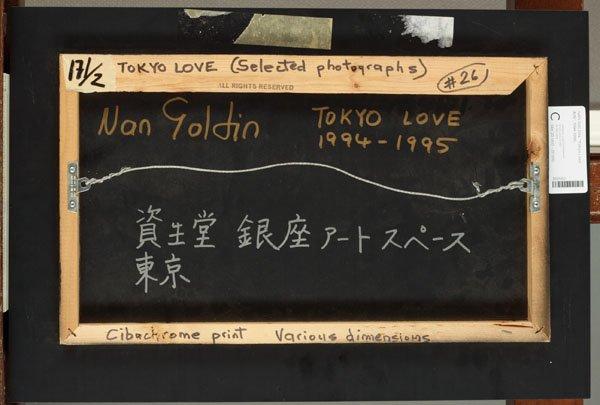 17/2
TOKYO LOVE (Selected photographs)
#26
ALL RIGHTS RESERVED
Nan Goldin
TOKYO LOVE
1994-1995
資生堂 銀座アートスペース
東京
Cibachrome print Various dimensions
C